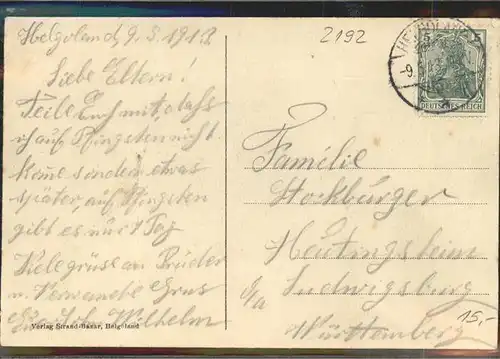 Helgoland, 9. 3. 1913
Liebe Eltern!
Teile Euch mit, daß
ich auf Pfingsten nicht
kome sondern etwas
später, auf Pfingsten
gibt es nur 1 Tag
Viele grüse an Brüder
u. Verwande Grus
Euer Sohn Wilhelm
Verlag Strand-Bazar, Helgoland
2192
HELGOLAND
5
-9.
DEUTSCHES REICH
Familie
Stockburger
Heutingsheim
b/a Ludwigsburg
Württemberg
15,-